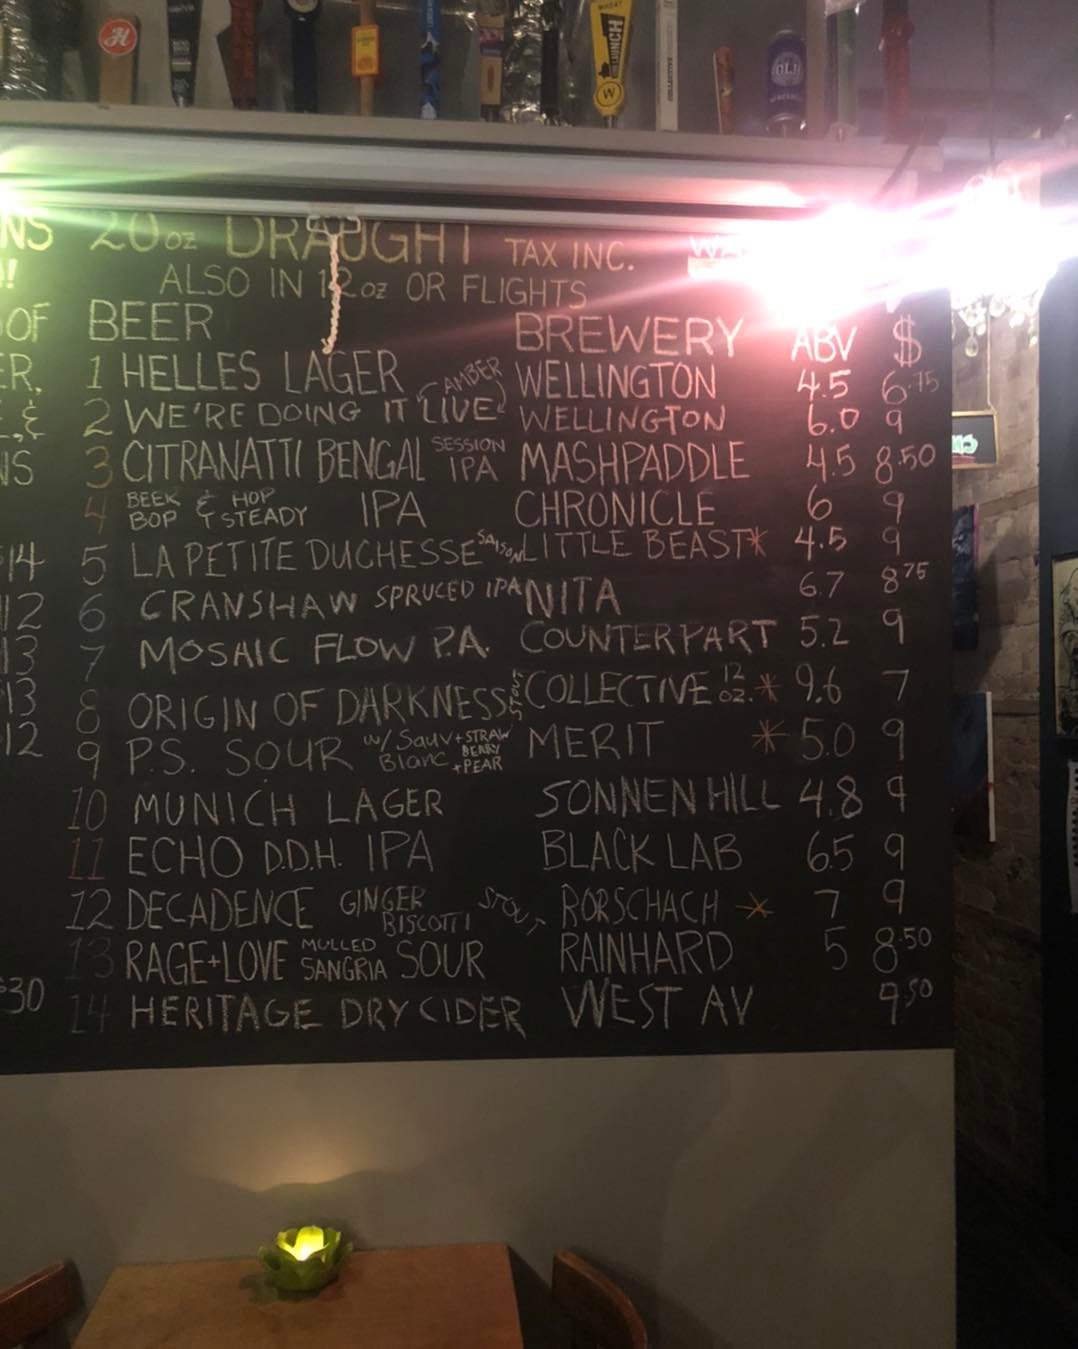 20 oz DRAUGHT TAX INC.
ALSO IN 12 oz OR FLIGHTS
OF BEER BREWERY ABV $
1 HELLES LAGER WELLINGTON 4.5 6.75
2 WE'RE DOING IT LIVE AMBER WELLINGTON 6.0 9
3 CITRANATTI BENGAL SESSION IPA MASHPADDLE 4.5 8.50
4 BEEK & HOP BOP STEADY IPA CHRONICLE 6 9
5 LA PETITE DUCHESSE SAISON LITTLE BEAST* 4.5 9
6 CRANSHAW SPRUCED IPA NITA 6.7 8.75
7 MOSAIC FLOW P.A. COUNTERPART 5.2 9
8 ORIGIN OF DARKNESS STOUT COLLECTIVE 12 OZ. * 9.6 7
9 P.S. SOUR w/ Sauv Blanc + STRAWBERRY + PEAR MERIT * 5.0 9
10 MUNICH LAGER SONNEN HILL 4.8 9
11 ECHO D.D.H. IPA BLACK LAB 65 9
12 DECADENCE GINGER BISCOTTI STOUT RORSCHACH * 7 9
13 RAGE+LOVE MULLED SANGRIA SOUR RAINHARD 5 8.50
14 HERITAGE DRY CIDER WEST AV 9.50
NS
ER.
NS
14
12
13
13
12
$30
H
WHEAT
LUNCH
W